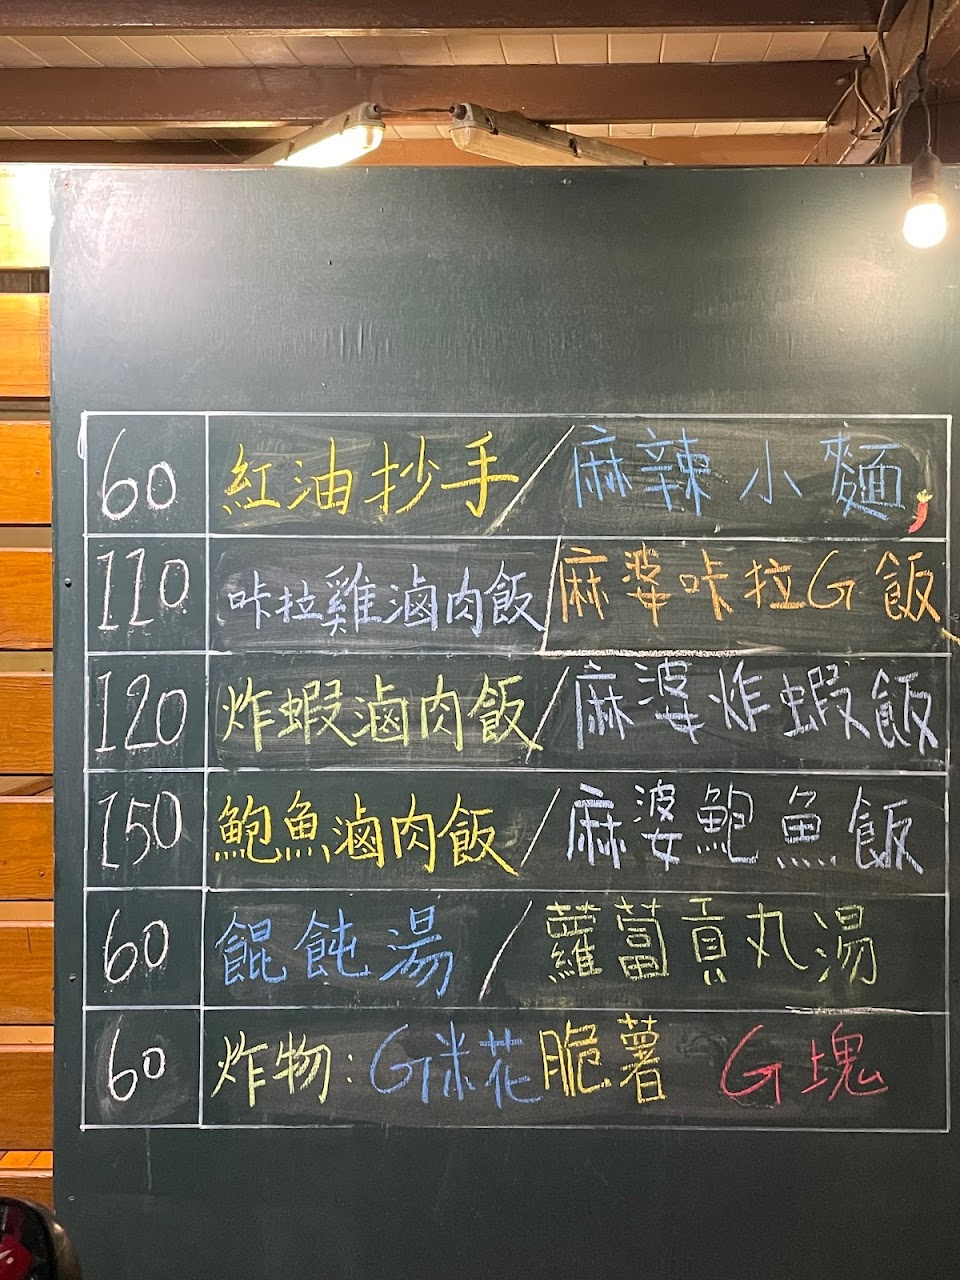 60 紅油抄手/麻辣小麵
110 咔拉雞滷肉飯/麻婆咔拉G飯
120 炸蝦滷肉飯/麻婆炸蝦飯
150 鮑魚滷肉飯/麻婆鮑魚飯
60 餛飩湯/蘿蔔貢丸湯
60 炸物:G米花 脆薯 G塊